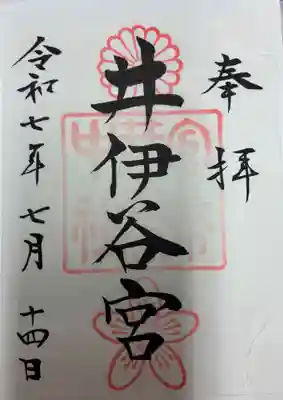 奉拝
井伊谷宮
令和七年七月十四日